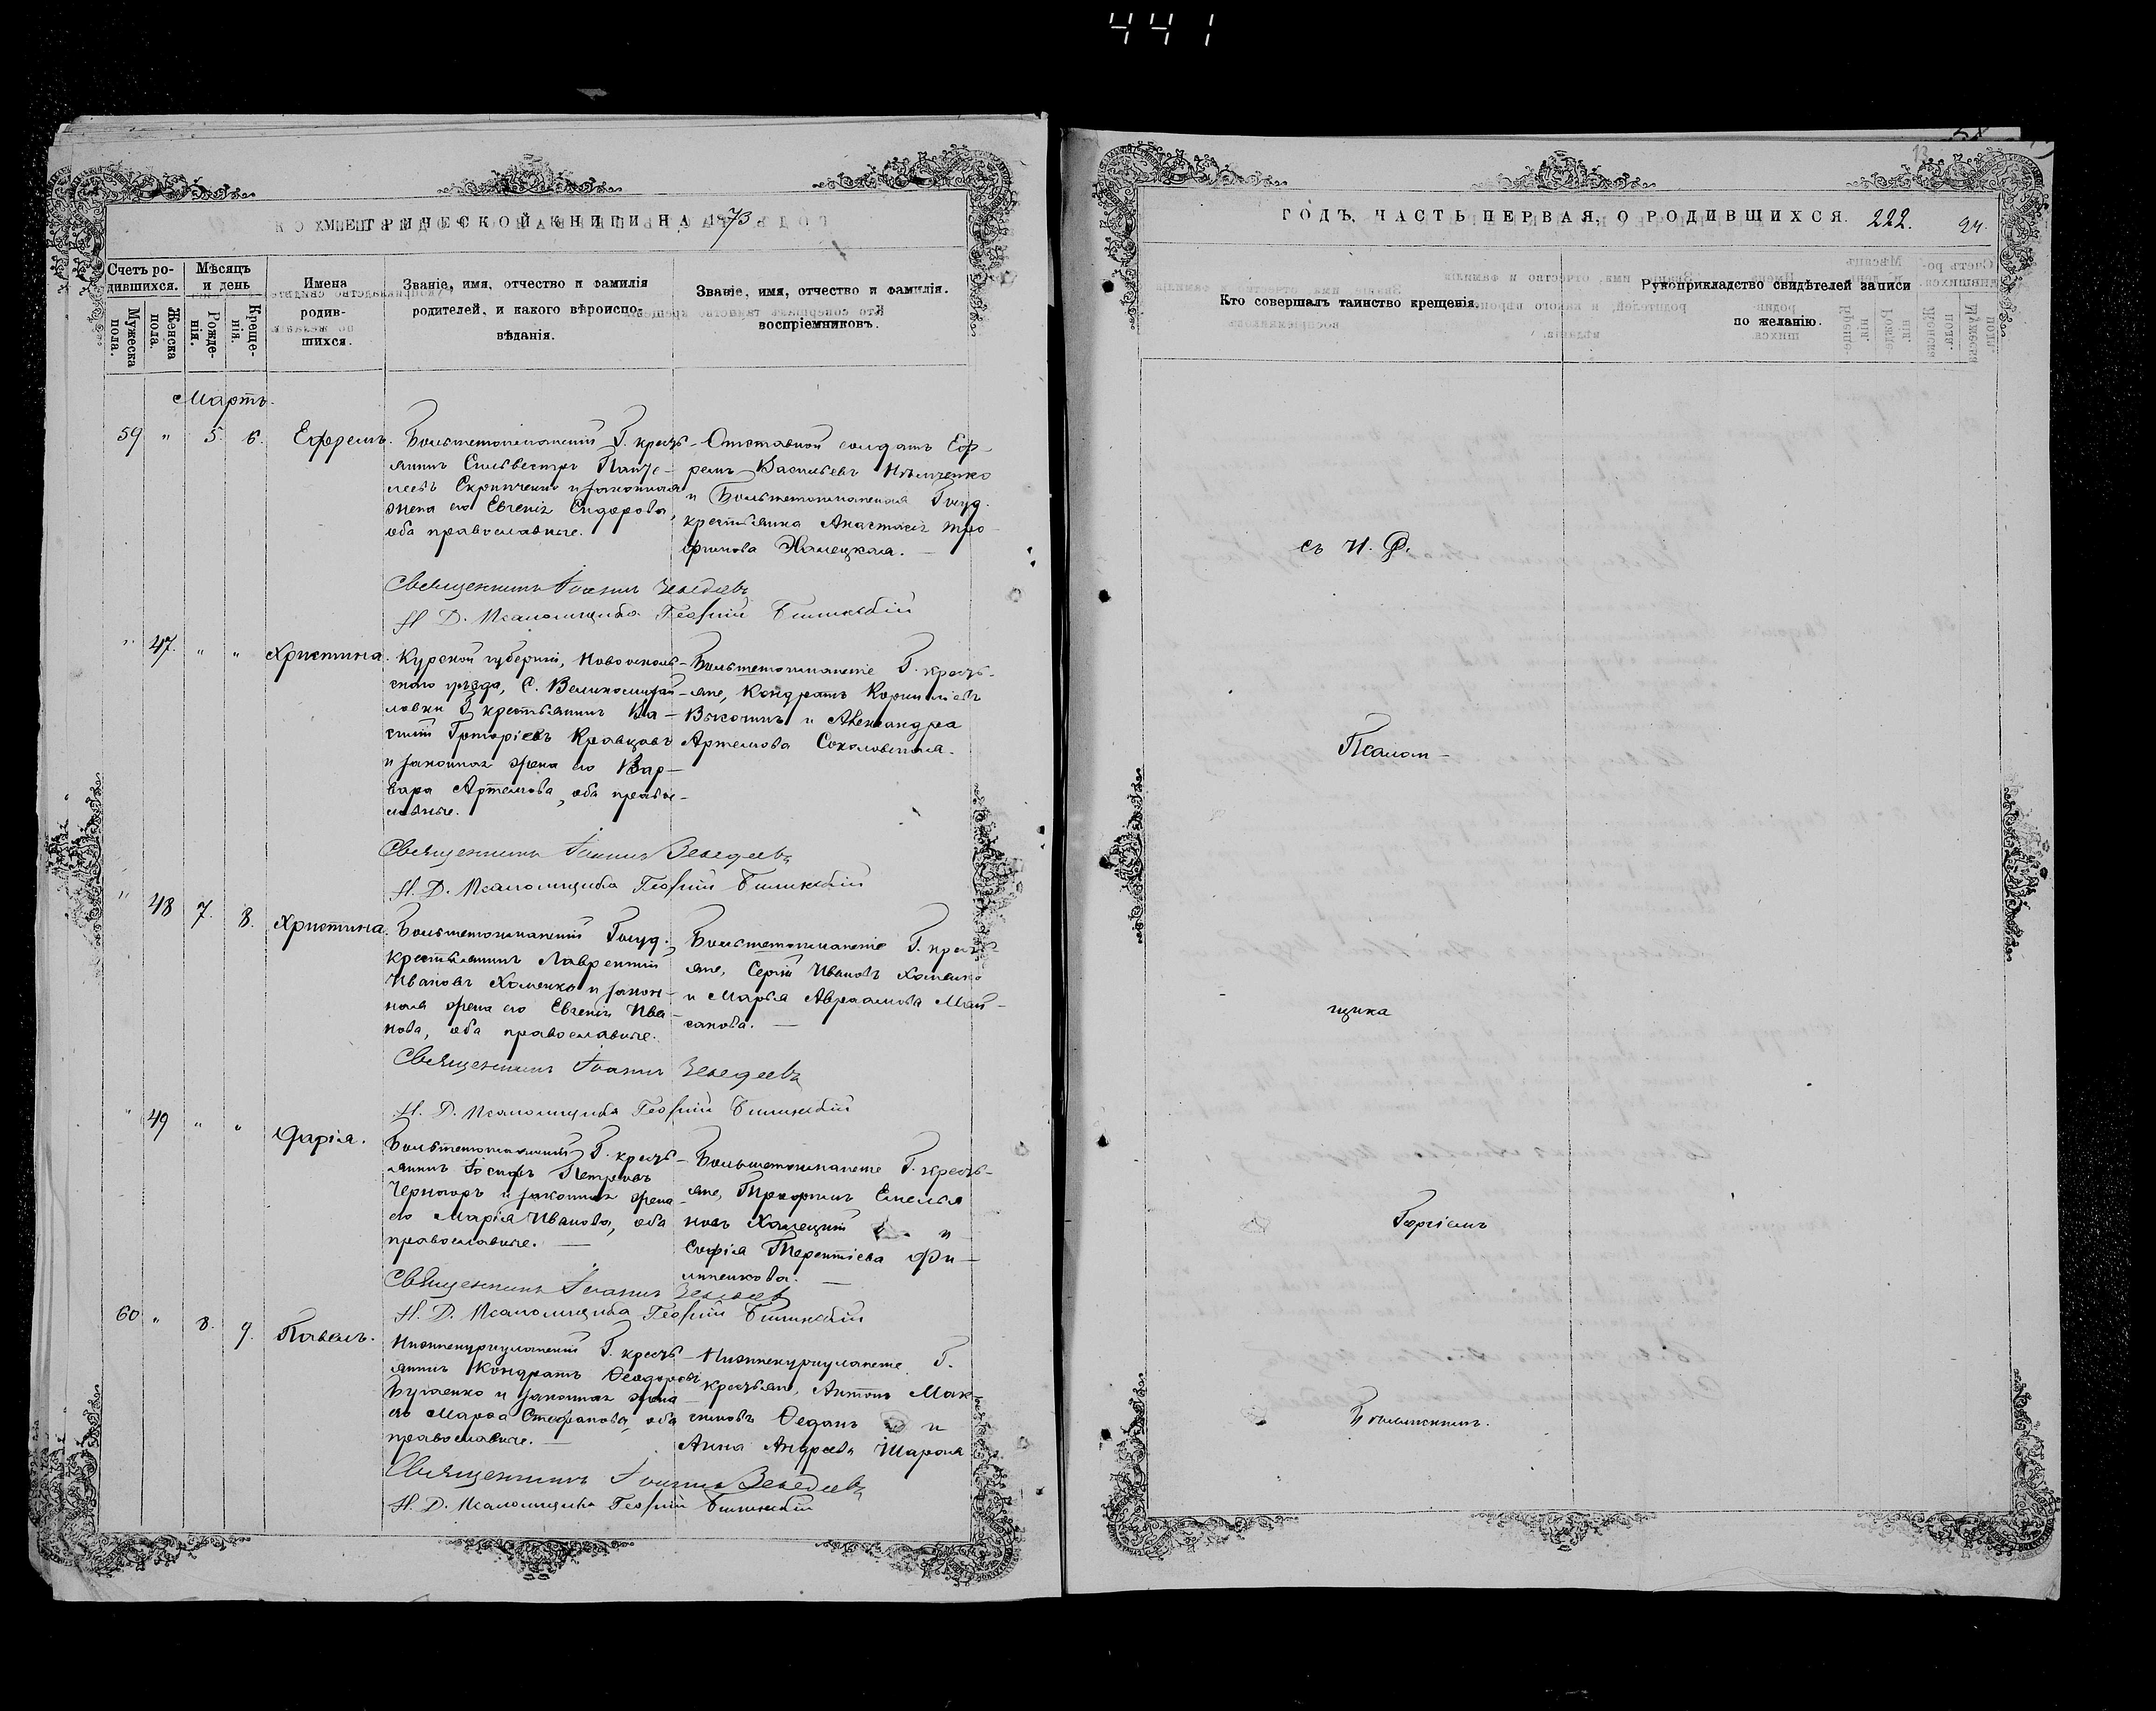 441
МЕТРИЧЕСКОЙ КНИГИ НА 1873
Счетъ ро-
дившихся.
Мужеска
пола.
Женска
пола.
Мѣсяцъ
и день
Рожде-
нія.
Креще-
нія.
Имена
родив-
шихся.
Званіе, имя, отчество и фамилія
родителей, и какого вѣроиспо-
вѣданія.
Званіе, имя, отчество и фамилія.
воспріемниковъ.
Мартъ.
59 " 5. 6. Ефремъ.
Большетокмакскій Г. кресть-
янинъ Сильвестръ
и законная
жена его Евгенія Сидорова,
оба православные.
Отставной солдатъ Еф-
ремъ Васильевъ
и Большетокмакская Госуд.
крестьянка Анастасія Тро-
фимова Халецкая.
Священникъ Іоаннъ Зеведеевъ
И. Д. Псаломщика Георгій
" 47. " " Христина.
Курской губерніи, Новооскольс-
каго уѣзда, С. Великомихай-
ловки Г. крестьянинъ Ва-
силій Григоріевъ Кравцовъ
и законная жена его Вар-
вара Артемова, оба право-
славные.
Большетокмакскіе Г. кресть-
яне, Кондратъ Корниліевъ
Высочинъ и Александра
Артемова Соколовская.
Священникъ Іоаннъ Зеведеевъ
И. Д. Псаломщика Георгій
" 48 7. 8. Христина.
Большетокмакскій Госуд.
крестьянинъ Лаврентій
Ивановъ Хоменко и закон-
ная жена его Евгенія Ива-
нова, оба православные.
Большетокмакскіе Г. кресть-
яне, Сергій Ивановъ Хоменко
и Марья Авраамова Май-
санова.
Священникъ Іоаннъ Зеведеевъ
И. Д. Псаломщика Георгій
" 49 " " Дарія.
Большетокмакскій Г. кресть-
янинъ Іосифъ Петровъ
Черногоръ и законная жена
его Марія Иванова, оба
православные.
Большетокмакскіе Г. кресть-
яне, Емелья
новъ Халецкій и
Софія Терентіева Фи-
липенкова.
Священникъ Іоаннъ Зеведеевъ
И. Д. Псаломщика Георгій
60 " 8. 9. Павелъ.
Нижнекуркулакскій Г. кресть-
янинъ Кондратъ Ѳеодоровъ
Бугаенко и законная жена
его Марѳа Стефанова, оба
православные.
Нижнекуркулакскіе Г.
крестьяне, Антонъ Мак-
симовъ Ѳеданъ и
Анна Андреева Шарая
Священникъ Іоаннъ Зеведеевъ
И. Д. Псаломщика Георгій
ГОДЪ, ЧАСТЬ ПЕРВАЯ, О РОДИВШИХСЯ. 222. 24.
Кто совершалъ таинство крещенія.
Рукоприкладство свидѣтелей записи
по желанію.
съ И. Д.
Псалом-
щика
Георгіемъ